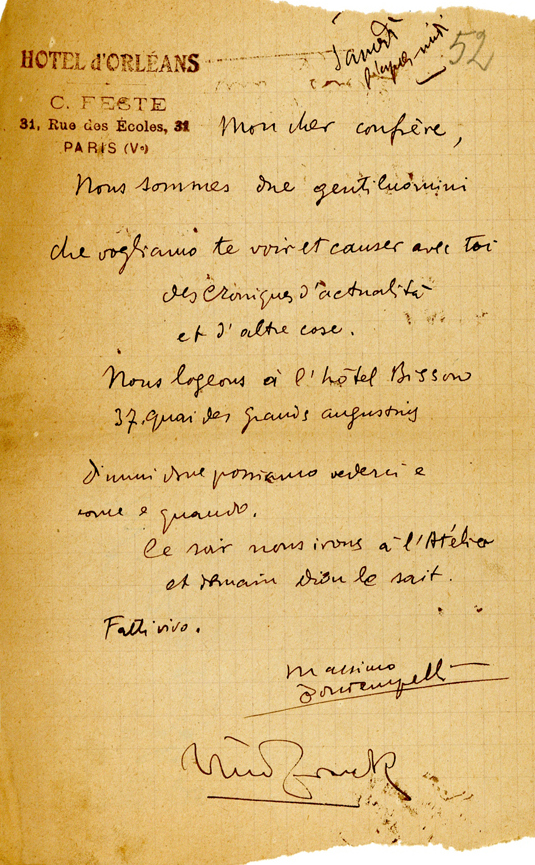 52
Samedi
HOTEL d'ORLÉANS
C. FESTE
31, Rue des Écoles, 31
PARIS (Ve)
Mon cher confrère,
Nous sommes due gentiluomini
che vogliamo te voir et causer avec toi
des croniques d'actualità
et d'altre cose.
Nous logeons à l'hôtel Bisson
37 quai des Grands augustins
dimmi dove possiamo vederci e
come e quando.
Ce soir nous irons à l'Atélier
et demain dieu le sait.
Fatti vivo.
Massimo
Bontempelli
Nino Frank